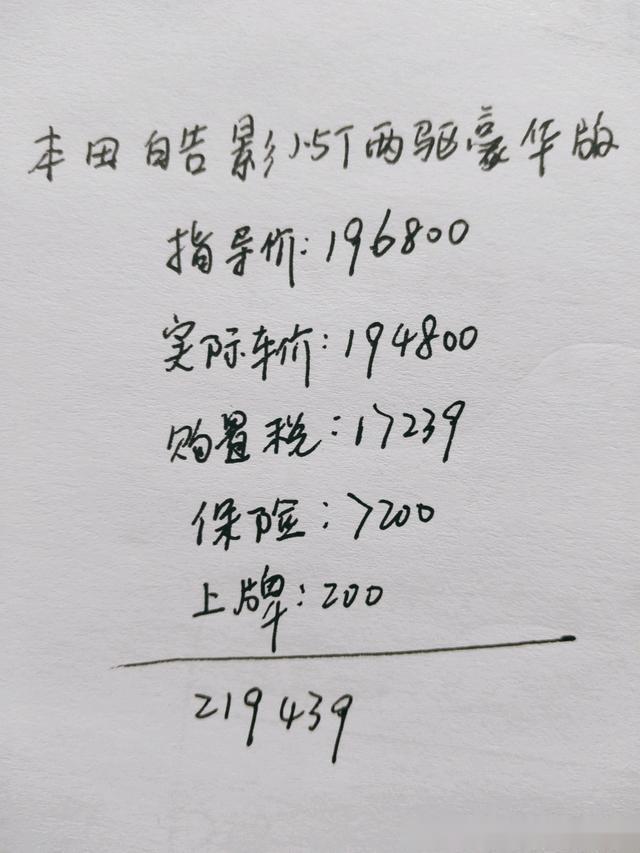 本田皓影1.5T两驱豪华版
指导价:196800
实际车价:194800
购置税:17239
保险:7200
上牌:200
219439